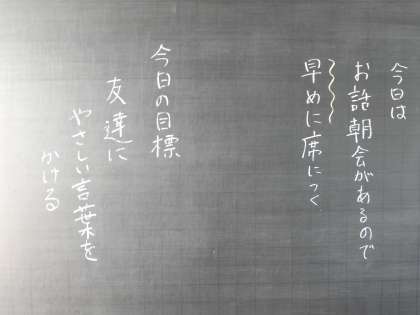 今日は
お話朝会があるので
早めに席につく
今日の目標
友達に
やさしい言葉を
かける